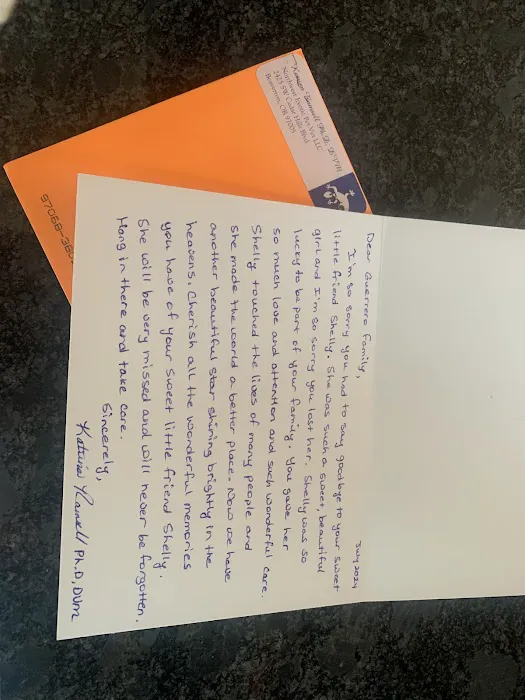 July 2024
Dear Guerrero Family,
I'm so sorry you had to say goodbye to your sweet
little friend Shelly. She was such a sweet, beautiful
girl and I'm so sorry you lost her. Shelly was so
lucky to be part of your family. You gave her
so much love and attention and such wonderful care.
Shelly touched the lives of many people and
she made the world a better place. Now we have
another beautiful star shining brightly in the
heavens. Cherish all the wonderful memories
you have of your sweet little friend Shelly.
She will be very missed and will never be forgotten.
Hang in there and take care.
Sincerely,
Ph.D, DVM
Ph. D., DVM
Northwest Exotic Pet Vet LLC
SW Cedar Hills Blvd
Beaverton, OR 97005
97068-36